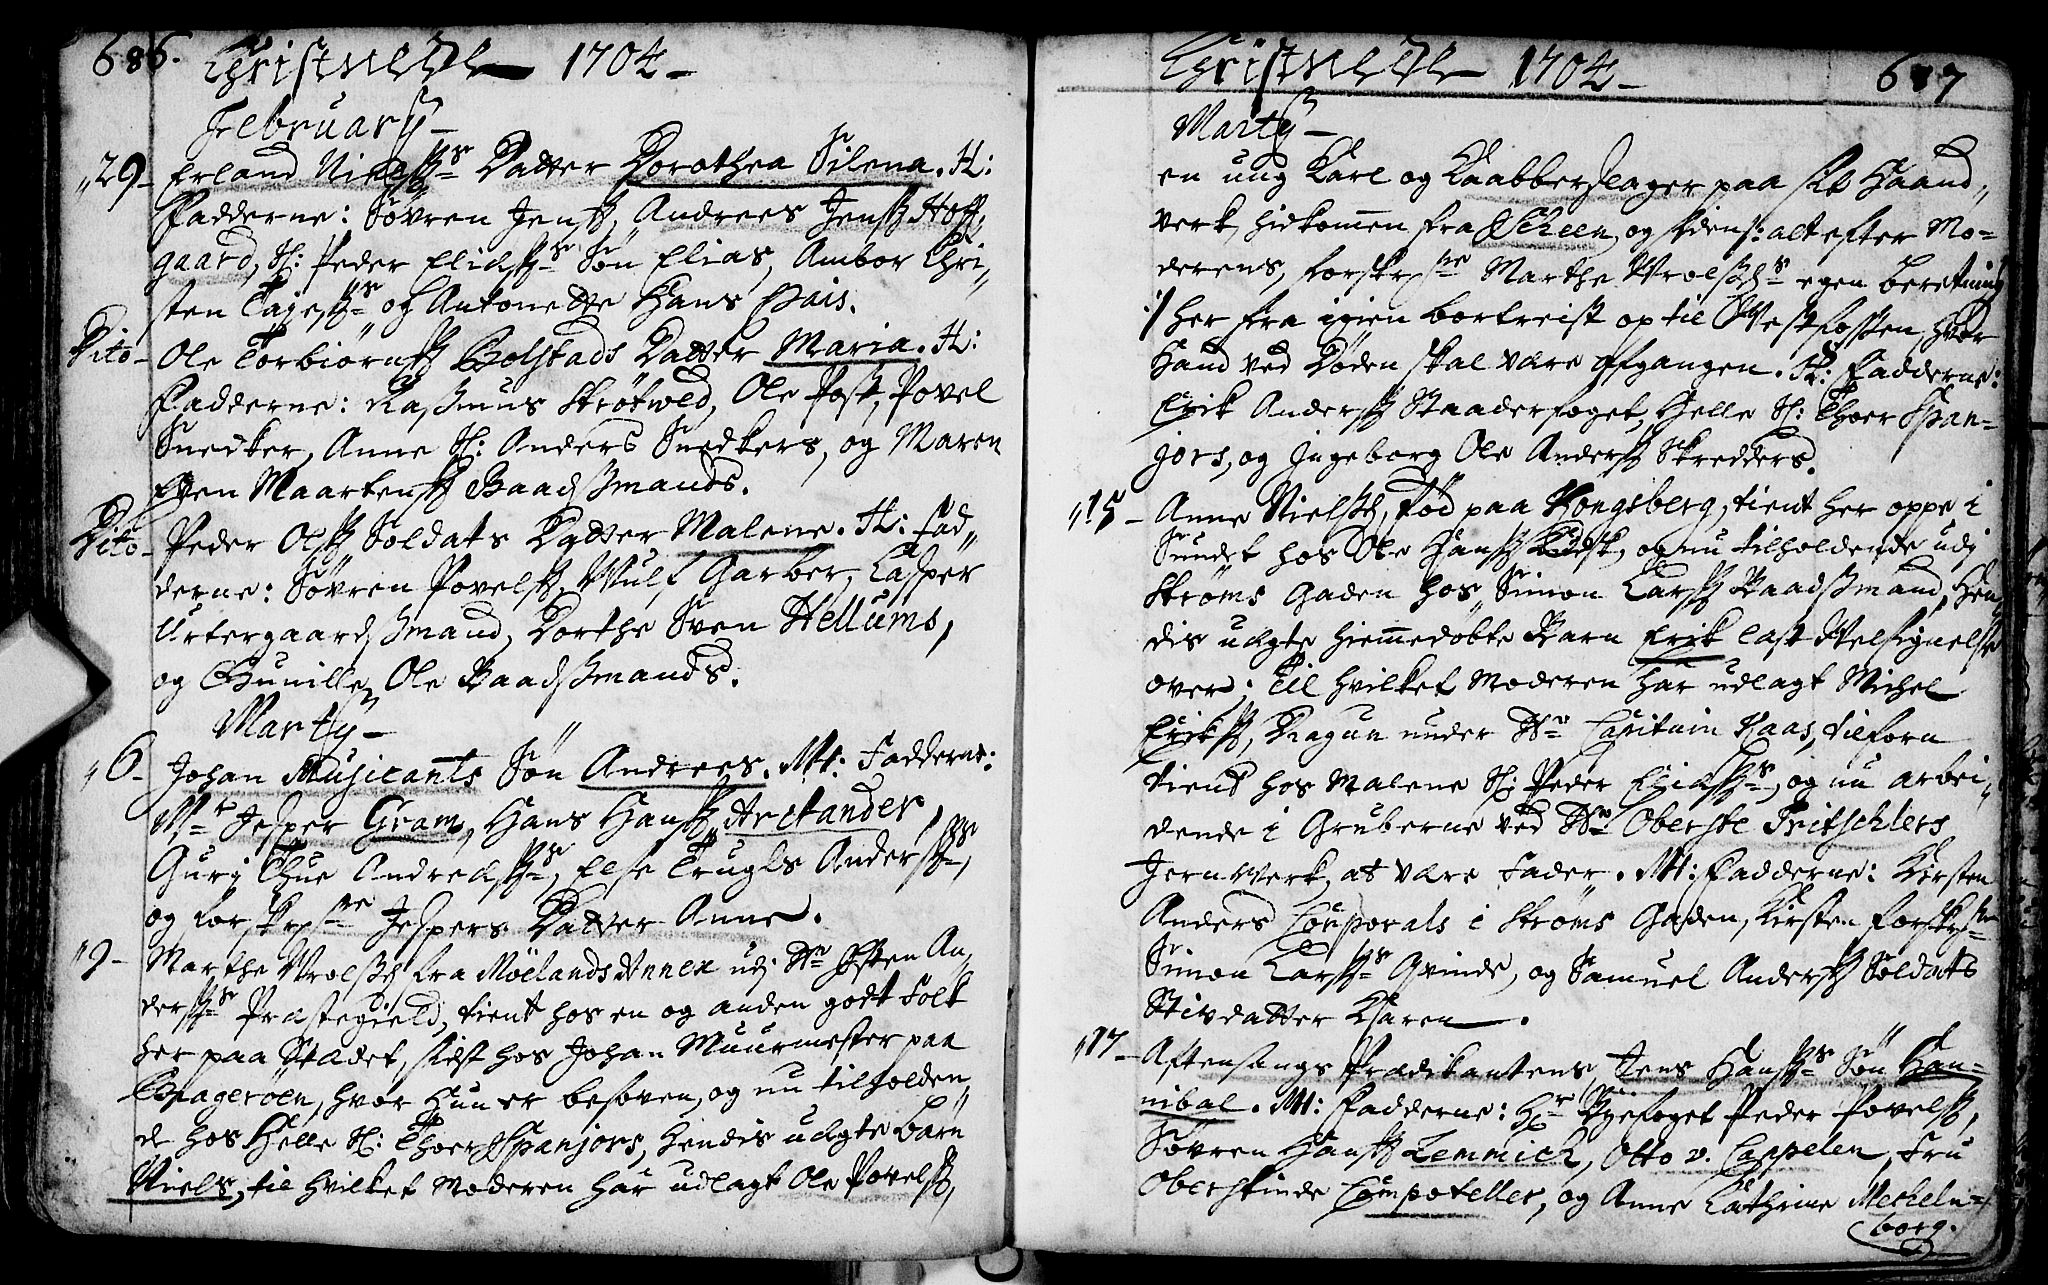 686. Christnede 1704
February
29 Erland Nielss: Datter Dorothea Silena. H:
Fadderne: Søvren Jenss, Andrees Jenss Hoff„
gaard, Sl: Peder Eliæss: Søn Elias, Ambor Chri„
sten Tagess: og Antonette Hans Pais.
Dito Ole Torbiørnss Bolstads Datter Maria. H:
Fadderne: Rasmus Strøtved, Ole Post, Povel
Snedker, Anne Sl: Anders Snedkers, og Maren
Even Maartenss Baadsmands.
Dito Peder Olss Soldats Datter Malene. H: Fad„
derne: Søvren Povelss, Wulf Garber, Casper
Urtergaardsmand, Dorthe Sven Hellums,
og Gunille Ole Baadsmands.
Marty
6 Johan Musicants Søn Andrees. M: Fadderne:
Mr Jesper Gram, Hans Hanss Arctander,
Gury Thue Andreæss:, Else Trugls Anderss:,
og forskrne Jespers Datter Anne.
9 Marthe Wrolssd fra Møelands Annex udj Hr Østen An„
derss: Præstegield, tient hos en og anden godt folk
her paa Stædet, sidst hos Johan Muurmester paa
Bragerøen, hvor hun er besoven, og nu tilholden„
de hos Helle Sl: Thoer Spanjors, hendis uægte barn
Niels, til hvilket Moderen har udlagt Ole Povelss,
Christnede 1704 687
Marty
en ung Karl og Kaabberslager paa sit Haand„
verk, hidkommen fra Scheen, og sidens: alt efter Mo=
derens, forskrne Marthe Wrolssds egen beretning
:/ her fra igien bortreist op til Westfossen, hvor
hand ved Døden skal være afgangen. H: Fadderne:
Erik Anderss Staaderfoget, Helle Sl: Thoer Span=
jors, og Ingeborg Ole Anderss Skredders.
15 Anne Nielssd, Fød paa Kongsberg, tient her oppe i
Sundet hos Ole Hanss, og nu tilholdende udj
Strøms Gaden hos Simon Larss Baadsmand, Hen„
dis uægte hiemmedøbte Barn Erik last Velsignelse
over; Til hvilket Moderen har udlagt Michel
Erikss, Dragun under Hr Capitain Kaas, tilforn
tiend hos Malene Sl: Peder Eliæss:, og nu arbei„
dende i Gruberne ved Hr Oberste Tritschlers
Jernverk, at være Fader. M: Fadderne: Kirsten
Anders Corporals i Strøms Gaden, Kirsten forskrne
Simon Larss: Qvinde, og Samuel Anderss Soldats
Stivdatter Karen.
17 Aftensangs Prædikantens, Jens Hanss: Søn Han=
nibal. M: Fadderne: Hr Byefoget Peder Povelss,
Søvren Hanss Lemmich, Otto v. Cappelen, Fru
Oberstinde Compoteller, og Anne Cathrine Mecheln=
borg.